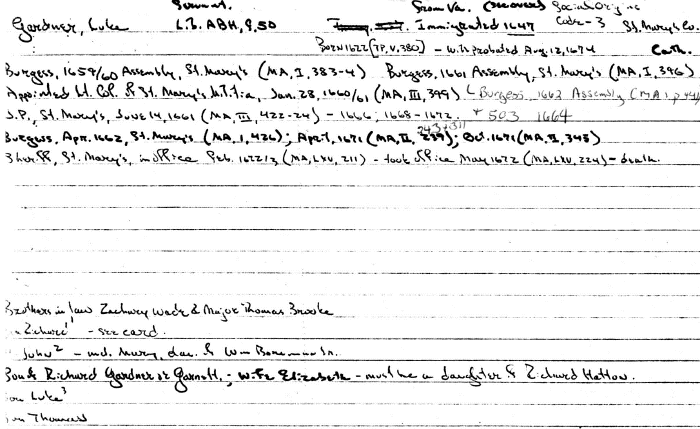 Servant. From Va. (Crossed) Social Origins
Gardner, Luke L.B. ABH, 9, 50 Immigrated 1647 Code-3 St. Mary's Co.
Born 1622 (TP, V, 380) - Will probated Aug. 12, 1674 Cath.
Burgess, 1659/60 Assembly, St. Mary's (MA, I, 383-4) Burgess, 1661 Assembly, St. Mary's (MA, I, 396)
Appointed Lt. Col. of St. Mary's Militia, Jan. 28, 1660/61 (MA, III, 399) Burgess, 1663 Assembly (MA I p 44
J.P., St. Mary's, June 14, 1661 (MA, III, 422-24) - 1666; 1668-1672. + 503 1664
243 + 311
Burgess, Apr. 1662, St. Mary's (MA, I, 426); Apr. 1671 (MA, II, 239); Oct. 1671 (MA, II, 345)
Sheriff, St. Mary's, in office Feb. 1672/3 (MA, LXV, 211) - took office May 1672 (MA, LXV, 224) - death.
Brothers in law Zachary Wade & Major Thomas Brooke
Richard¹ - see card.
John² - md. Mary, dau. of Wm Boreman Sr.
Son of Richard Gardner or Garnett. - wife Elizabeth - must be a daughter of Richard Hatton.
Luke³
Thomas